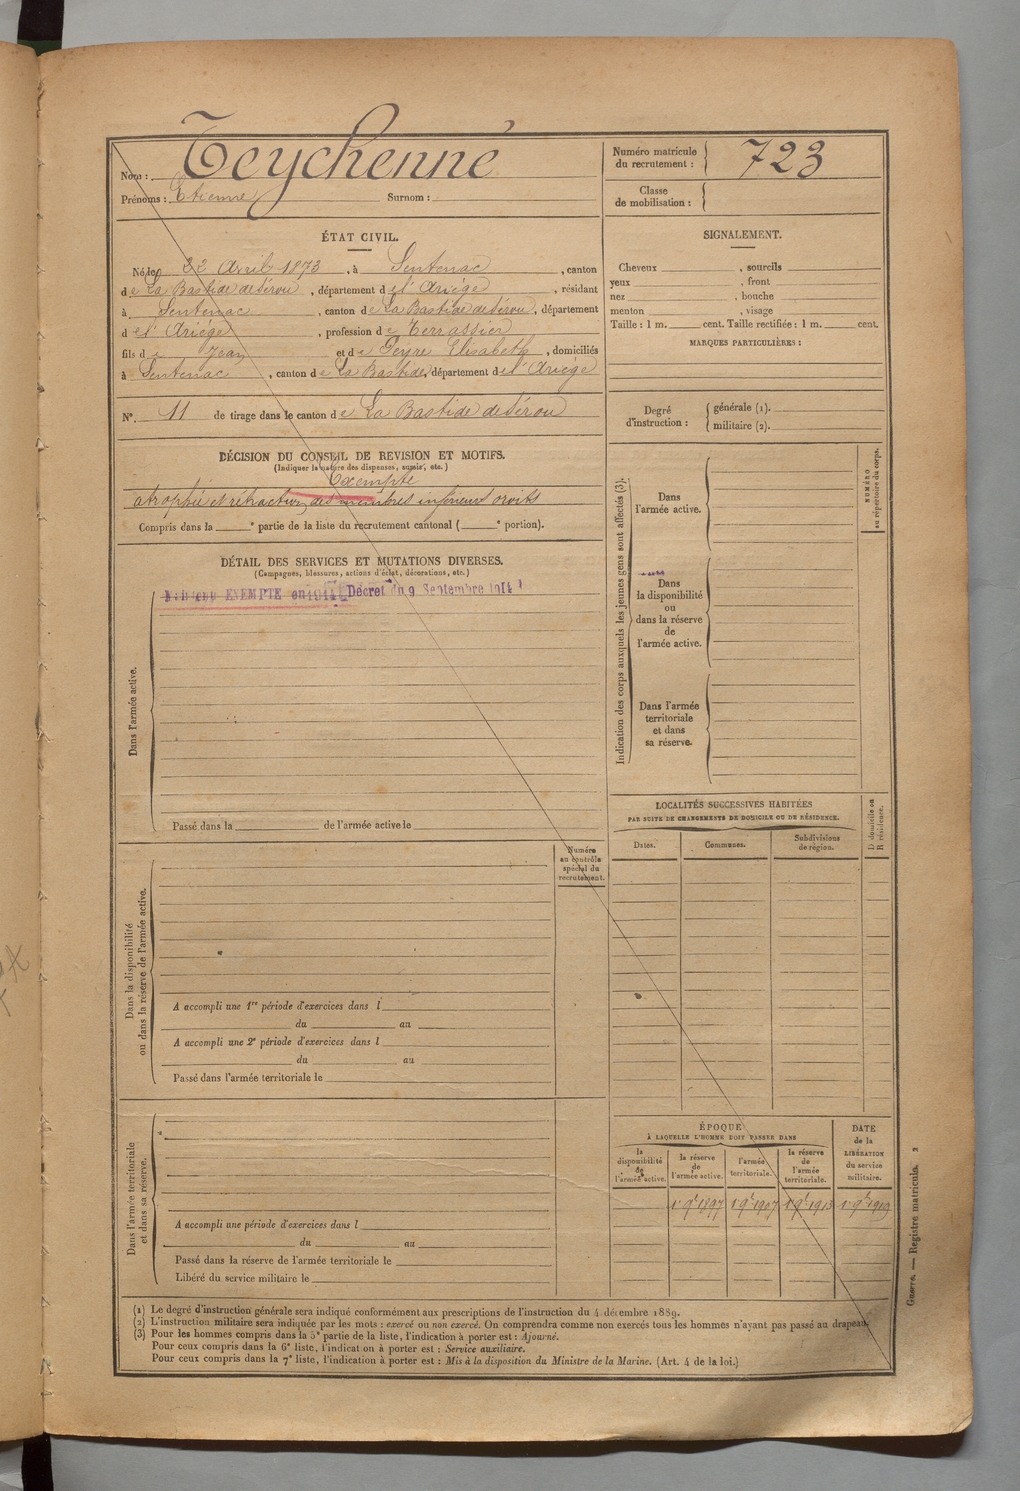 Nom : Teychenné
Prénoms : Etienne Surnom :
Numéro matricule du recrutement : 723
Classe de mobilisation :
ÉTAT CIVIL.
Né le 22 Avril 1873, à Sentenac, canton
de La Bastide de Sérou, département de l'Ariége, résidant
à Sentenac, canton de La Bastide de Sérou, département
de l'Ariége, profession de Terrassier
fils de Jean et de Peyre Elisabeth, domiciliés
à Sentenac, canton de La Bastide, département de l'Ariége
N°. 11 de tirage dans le canton de La Bastide de Sérou
DÉCISION DU CONSEIL DE REVISION ET MOTIFS.
(Indiquer la nature des dispenses, sursis, etc.)
Exempté
atrophie et rétraction des membres inférieurs droits
Compris dans la ___ e partie de la liste du recrutement cantonal ( ___ e portion).
DÉTAIL DES SERVICES ET MUTATIONS DIVERSES.
(Campagnes, blessures, actions d'éclat, décorations, etc.)
EXEMPTÉ en 1914 Décret du 9 Septembre 1914
Dans l'armée active.
Passé dans la ___ de l'armée active le
Numéro
au contrôle
spécial du
recrutement.
Dans la disponibilité
ou dans la réserve de l'armée active.
A accompli une 1re période d'exercices dans l
du ___ au
A accompli une 2e période d'exercices dans l
du ___ au
Passé dans l'armée territoriale le
Dans l'armée territoriale
et dans sa réserve.
A accompli une période d'exercices dans l
du ___ au
Passé dans la réserve de l'armée territoriale le
Libéré du service militaire le
SIGNALEMENT.
Cheveux ___, sourcils
yeux ___, front
nez ___, bouche
menton ___, visage
Taille : 1 m. ___ cent. Taille rectifiée : 1 m. ___ cent.
MARQUES PARTICULIÈRES :
Degré d'instruction : générale (1).
militaire (2).
Indication des corps auxquels les jeunes gens sont affectés (3).
Dans
l'armée active.
Dans
la disponibilité
ou
dans la réserve
de
l'armée active.
Dans l'armée
territoriale
et dans
sa réserve.
NUMÉRO
au répertoire du corps.
LOCALITÉS SUCCESSIVES HABITÉES
PAR SUITE DE CHANGEMENTS DE DOMICILE OU DE RÉSIDENCE.
D domicile ou
R résidence.
Dates. Communes. Subdivisions de région.
ÉPOQUE
À LAQUELLE L'HOMME DOIT PASSER DANS
la disponibilité de l'armée active.
la réserve de l'armée active.
l'armée territoriale.
la réserve de l'armée territoriale.
DATE de la LIBÉRATION du service militaire.
1r 9b 1897 1r 9b 1907 1r 9b 1913 1r 9b 1919
(1) Le degré d'instruction générale sera indiqué conformément aux prescriptions de l'instruction du 4 décembre 1889.
(2) L'instruction militaire sera indiquée par les mots : exercé ou non exercé. On comprendra comme non exercés tous les hommes n'ayant pas passé au drapeau.
(3) Pour les hommes compris dans la 5e partie de la liste, l'indication à porter est : Ajourné.
Pour ceux compris dans la 6e liste, l'indication à porter est : Service auxiliaire.
Pour ceux compris dans la 7e liste, l'indication à porter est : Mis à la disposition du Ministre de la Marine. (Art. 4 de la loi.)
Guerre. — Registre matricule. 2